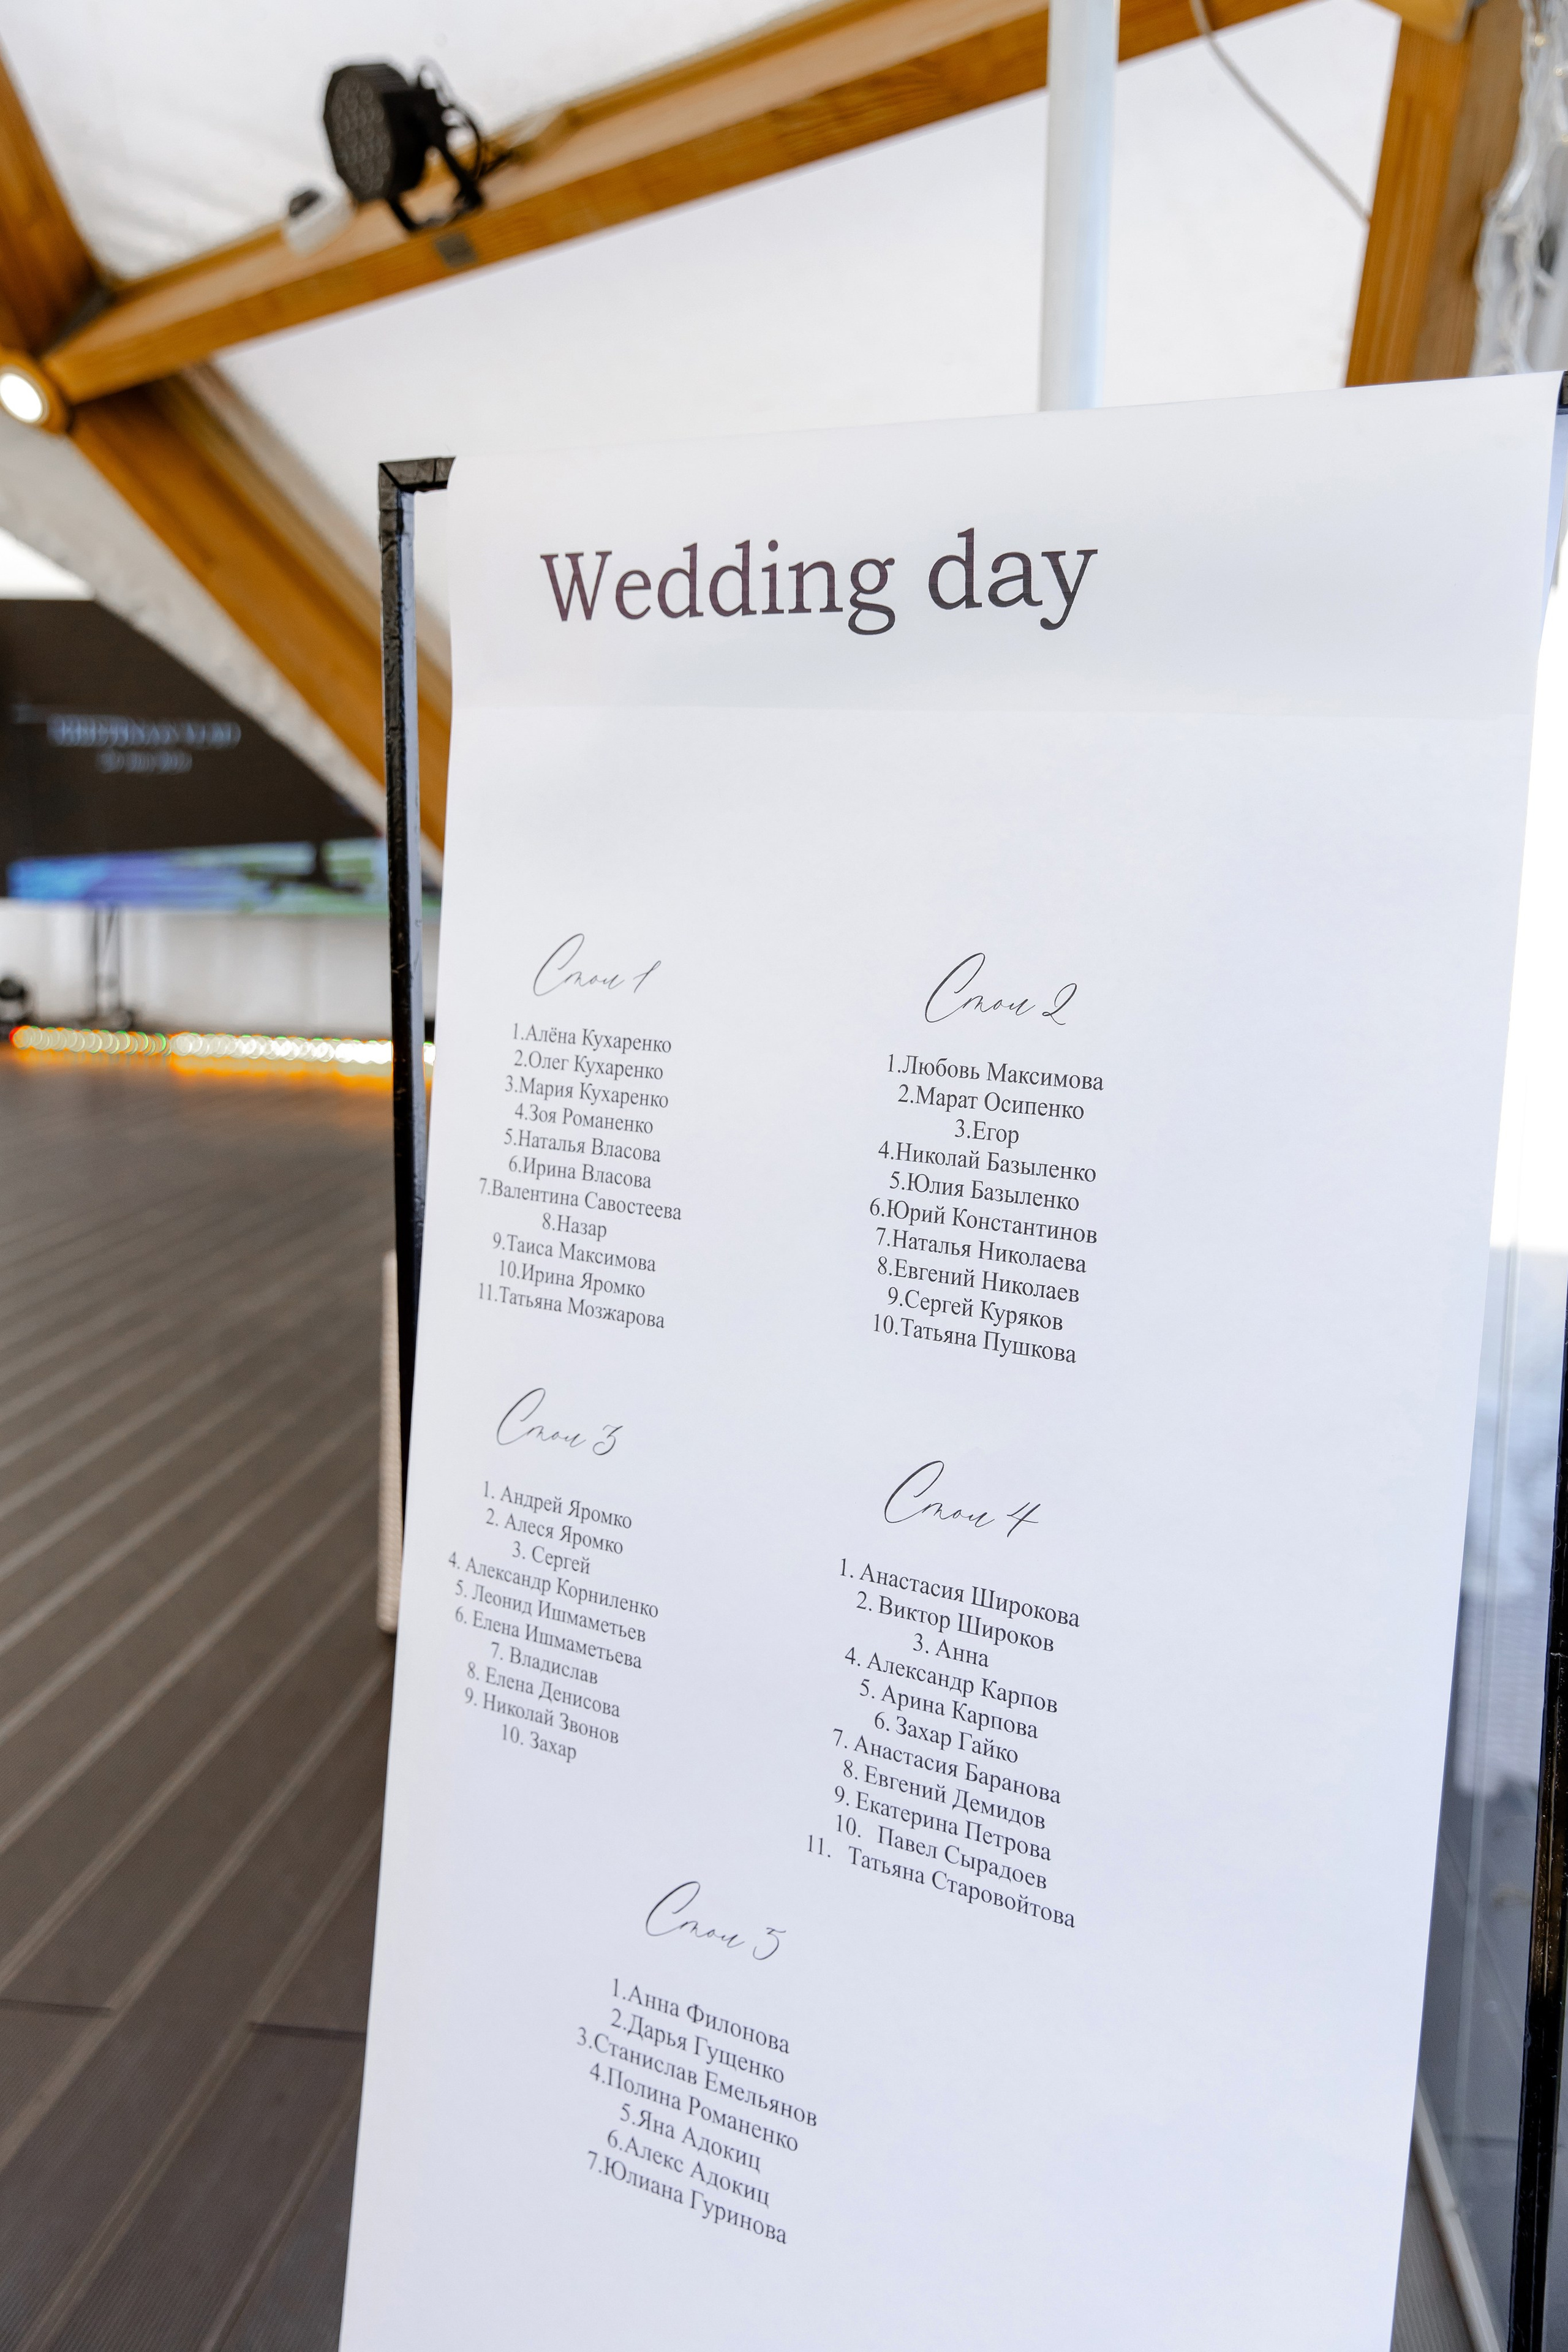 Wedding day
Стол 1
1.Алёна Кухаренко
2.Олег Кухаренко
3.Мария Кухаренко
4.Зоя Романенко
5.Наталья Власова
6.Ирина Власова
7.Валентина Савостеева
8.Назар
9.Таиса Максимова
10.Ирина Яромко
11.Татьяна Мозжарова
Стол 2
1.Любовь Максимова
2.Марат Осипенко
3.Егор
4.Николай Базыленко
5.Юлия Базыленко
6.Юрий Константинов
7.Наталья Николаева
8.Евгений Николаев
9.Сергей Куряков
10.Татьяна Пушкова
Стол 3
1. Андрей Яромко
2. Алеся Яромко
3. Сергей
4. Александр Корниленко
5. Леонид Ишмаметьев
6. Елена Ишмаметьева
7. Владислав
8. Елена Денисова
9. Николай Звонов
10. Захар
Стол 4
1. Анастасия Широкова
2. Виктор Широков
3. Анна
4. Александр Карпов
5. Арина Карпова
6. Захар Гайко
7. Анастасия Баранова
8. Евгений Демидов
9. Екатерина Петрова
10. Павел Сырадоев
11. Татьяна Старовойтова
Стол 5
1.Анна Филонова
2.Дарья Гущенко
3.Станислав Емельянов
4.Полина Романенко
5.Яна Адокиц
6.Алекс Адокиц
7.Юлиана Гуринова